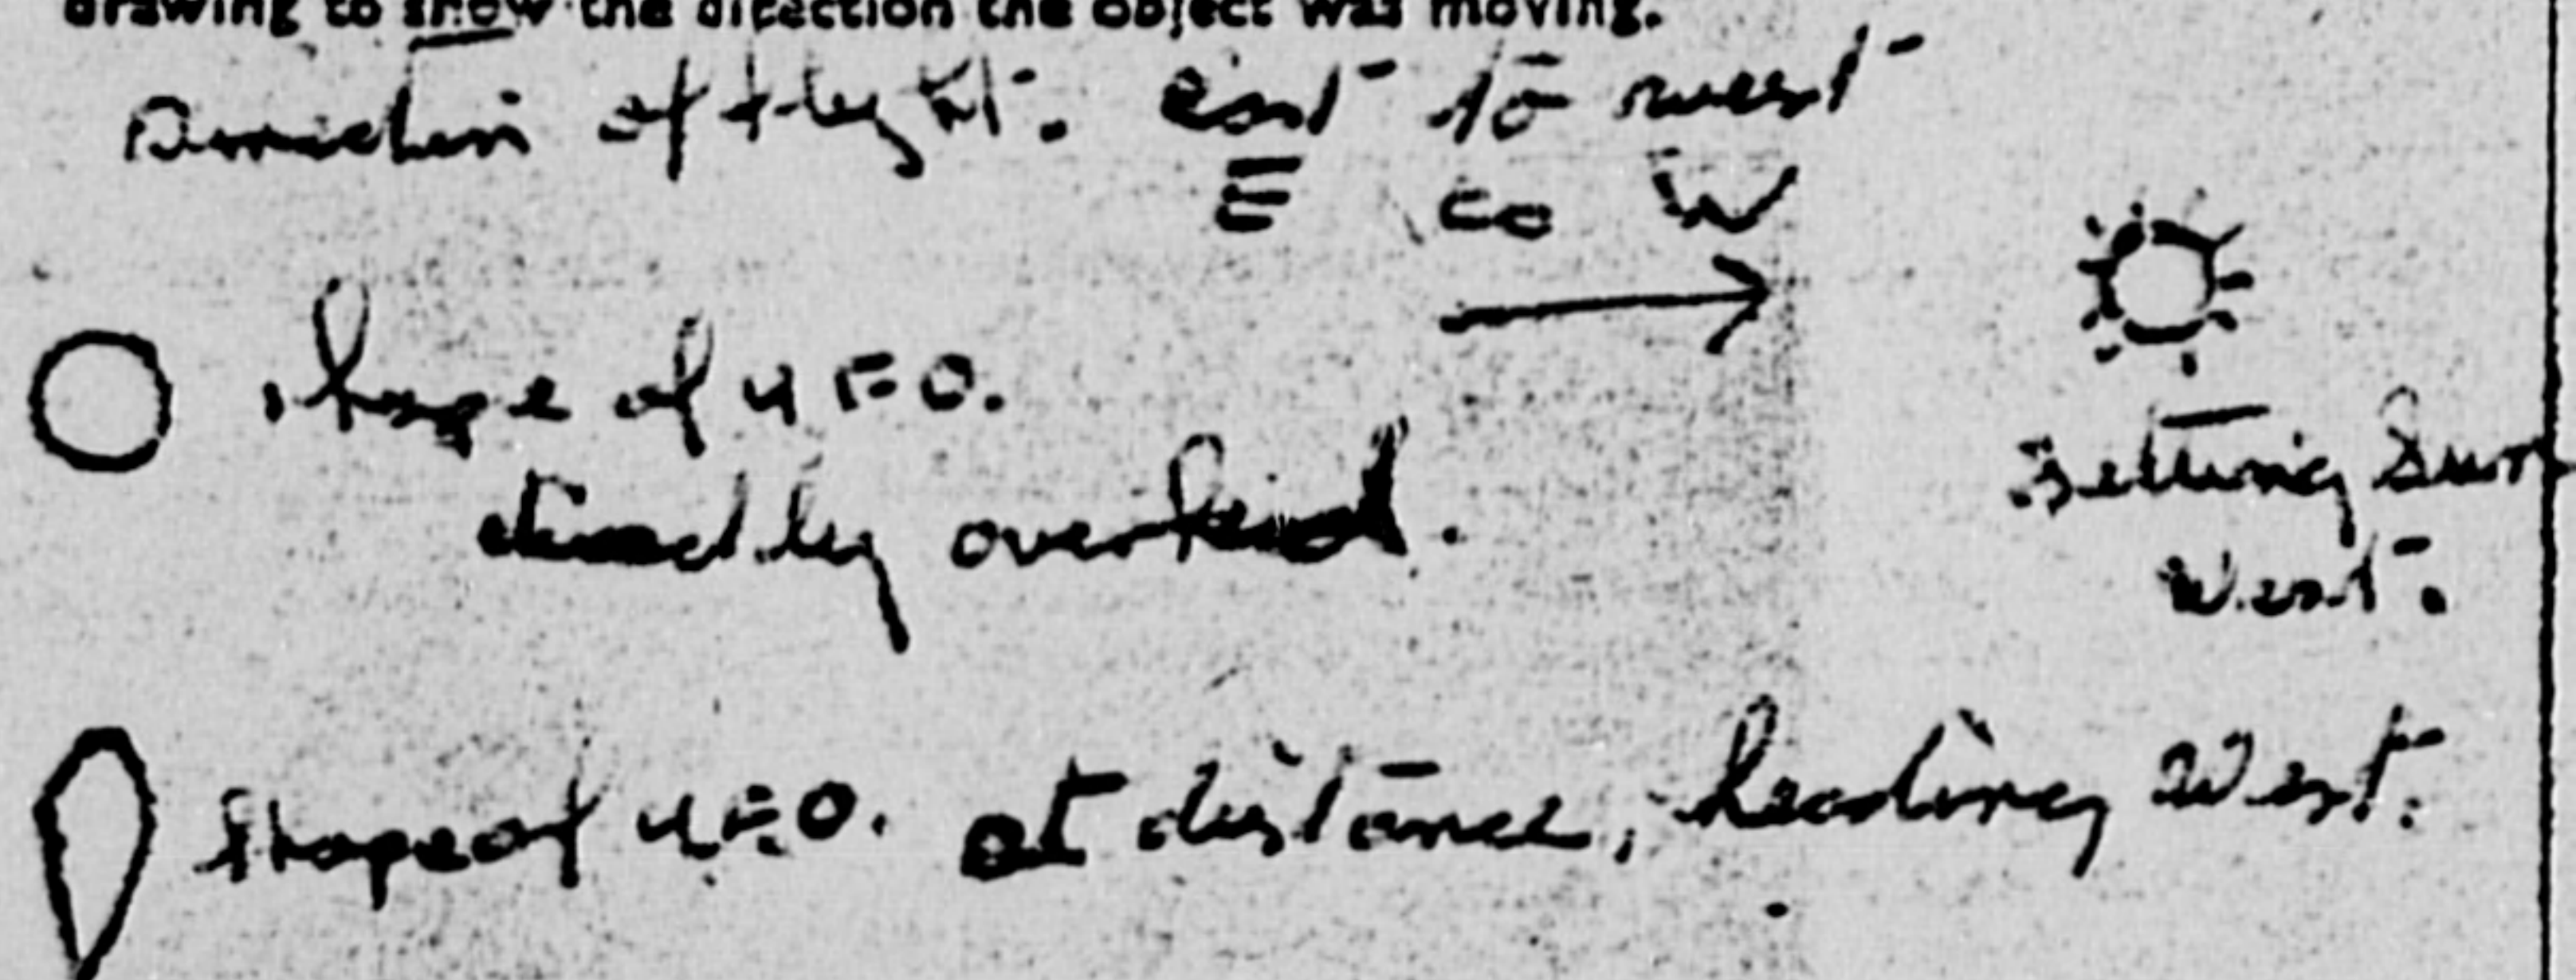 drawing to show the direction the object was moving.
Direction of flight. East to west
E to W
shape of UFO.
directly overhead.
Setting Sun
West.
Shape of U.F.O. at distance, heading West.